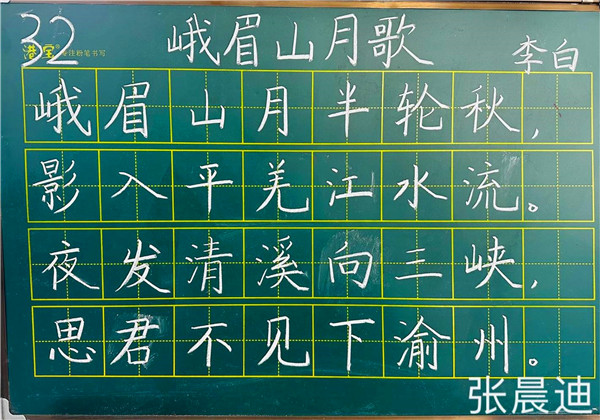 32
港宝 专注粉笔书写
峨眉山月歌
李白
峨眉山月半轮秋，
影入平羌江水流。
夜发清溪向三峡，
思君不见下渝州。
张晨迪